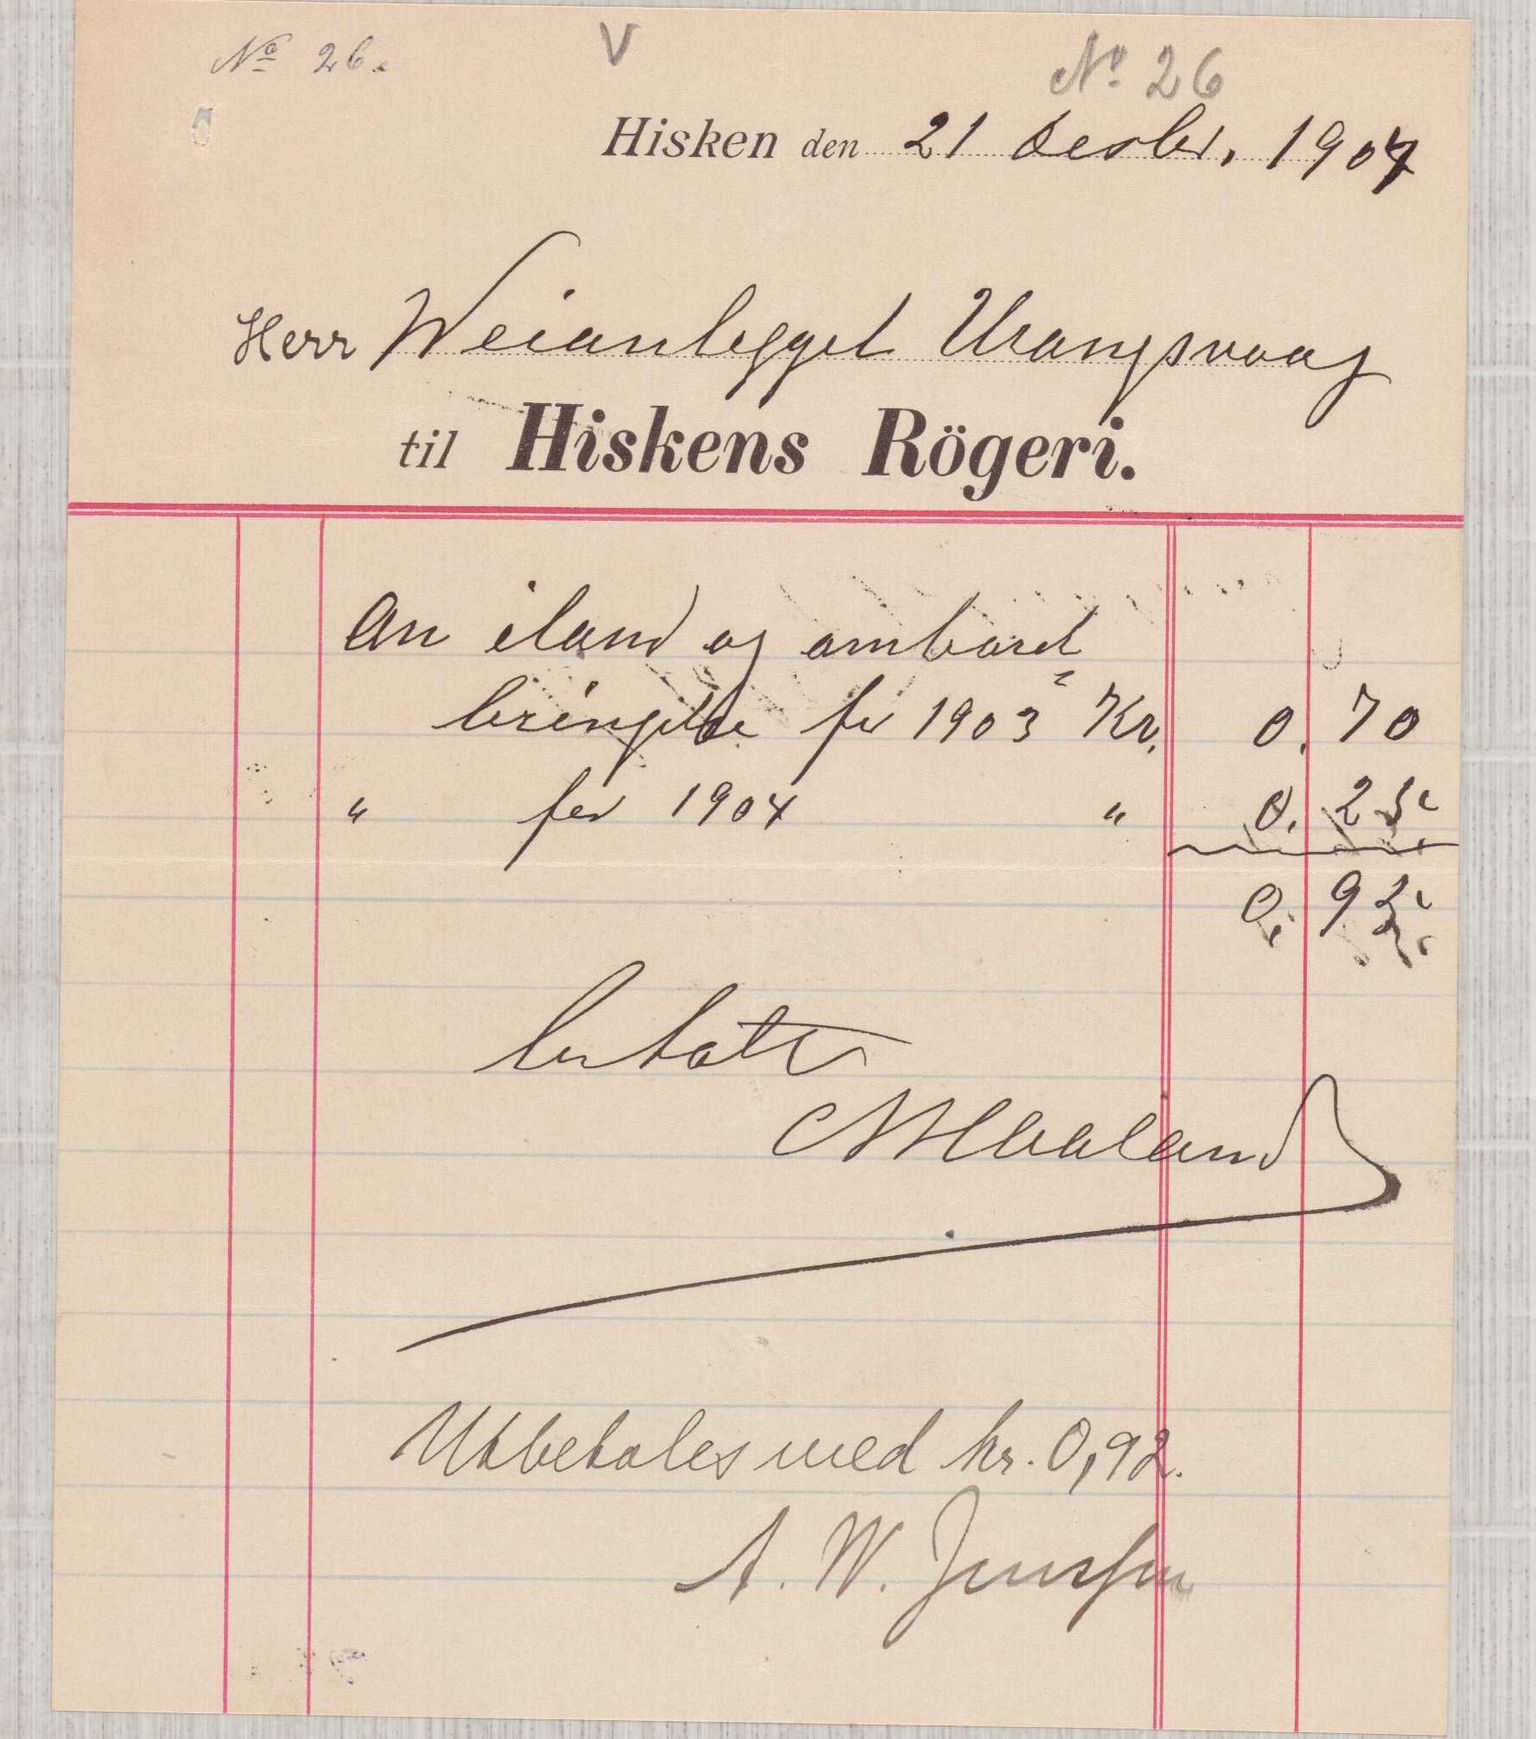 No 26.
V
No 26
Hisken den 21 Desbr. 1904
Herr Weianlegget Urangsvaag
til Hiskens Rögeri.
An iland og ombord
bringelse for 1903 Kr. 0.70
" for 1904 " 0.
0.92
betalt
Utbetales med kr. 0,92.
A. W. Jenssen